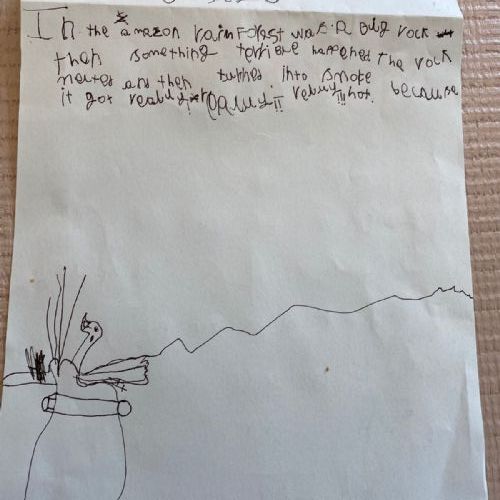 In the amazon rain Forest was A Big rock
then something terrible happened the rock
melted and then turned into smoke
it got really! really!! really!!! hot. because